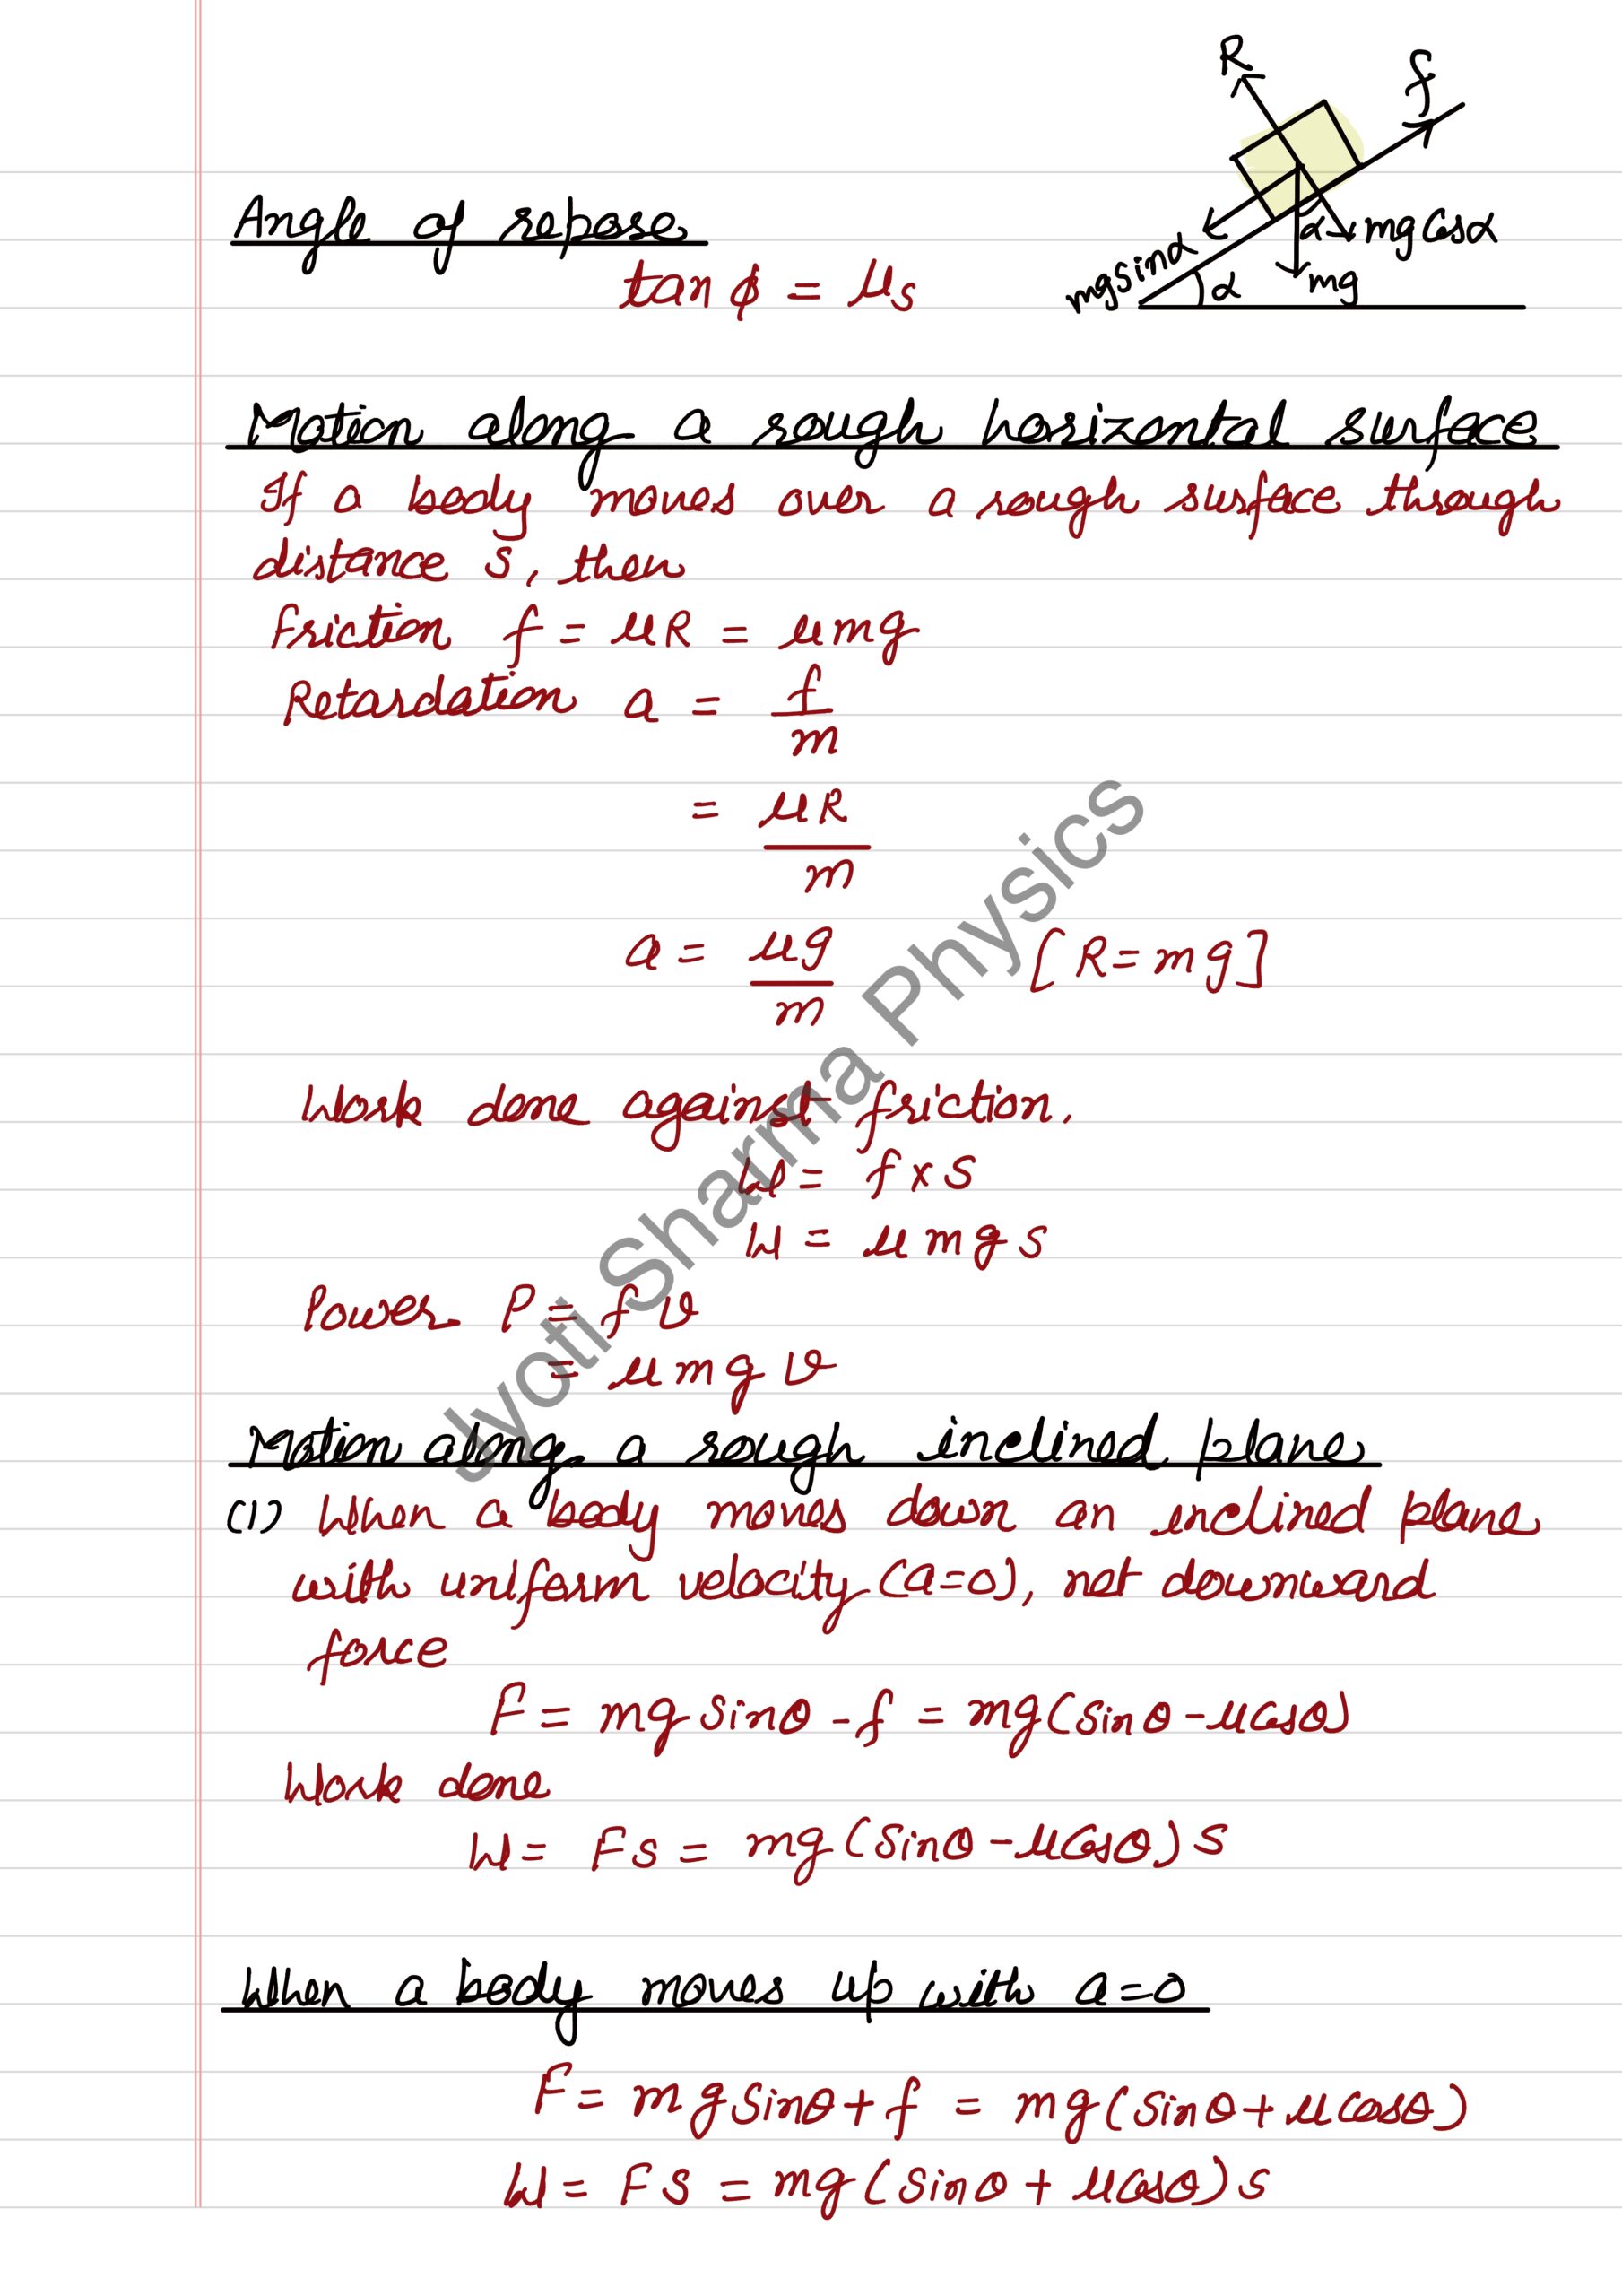 R
f
Angle of repose
α mg Cosα
mg sinα
α
mg
tan ϕ = μs
Motion along a rough horizontal surface
If a body moves over a rough surface through
distance s, then
Friction f = μR = μmg
Retardation a = f/m
= μR/m
a = μg/m [R = mg]
Work done against friction.
W = f × s
W = μ mg s
Power P = f v
= μ m g v
Motion along a rough inclined plane
(1) When a body moves down an inclined plane
with uniform velocity (a=0), net downward
force
F = mg sinθ - f = mg (sin θ - μ cosθ)
Work done
W = Fs = mg (sinθ - μ cosθ) s
When a body moves up with a=0
F = mg sinθ + f = mg (sin θ + μ cosθ)
W = FS = mg (sin θ + μ cosθ) s
Jyoti Sharma Physics